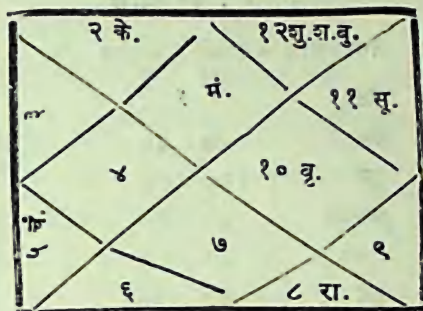 २ के. १२शु.श.बु.
मं.
३ ११ सू.
४ १० वृ.
चं.
५ ७ ९
६ ८ रा.